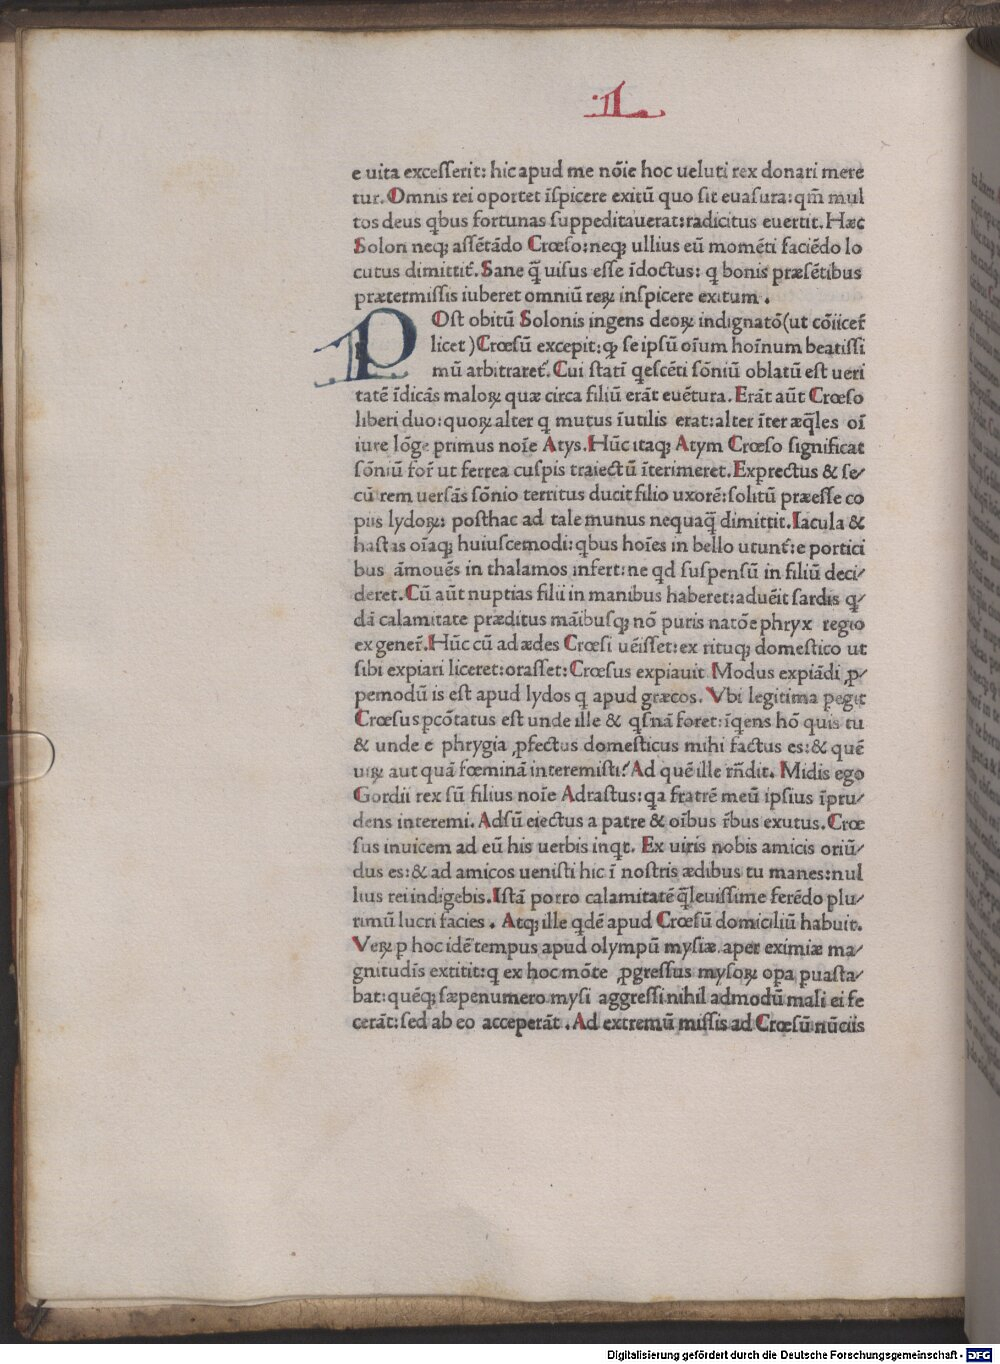 .1L.
e uita excesserit: hic apud me nōie hoc ueluti rex donari mere
tur. Omnis rei oportet īspicere exitū quo sit euasura: qm̄ mul
tos deus qbus fortunas suppeditauerat: radicitus euertit. Hæc
Solon neq; assētādo Crœso: neq; ullius eū momēti faciēdo lo
cutus dimittit̄. Sane q̄ uisus esse īdoctus: q bonis præsētibus
prætermissis iuberet omniū reꝝ inspicere exitum.
POst obitū Solonis ingens deoꝝ indignatō (ut cōiicer̄
licet) Crœsū excepit: ꝙ se ipsū oīum hoīnum beatissi
mū arbitraret̄. Cui statī qescēti sōniū oblatū est ueri
tatē īdicās maloꝝ quæ circa filiū erāt euētura. Erāt aūt Crœso
liberi duo: quoꝝ alter q mutus īutilis erat: alter īter æq̄les oī
iure lōge primus noīe Atys. Hūc itaq; Atym Crœso significat
sōniū for̄ ut ferrea cuspis traiectū īterimeret. Exprectus & se/
cū rem uersās sōnio territus ducit filio uxorē: solitū præesse co
piis lydoꝝ: posthac ad tale munus nequaq̄ dimittit. Iacula &
hastas oīaq; huiuscemodi: qbus hoīes in bello utunt̄: e portici
bus āmouēs in thalamos infert: ne qd suspensū in filiū deci/
deret. Cū aūt nuptias filii in manibus haberet: aduēit sardis q/
dā calamitate præditus māibusq; nō puris natōe phryx regio
ex gener̄. Hūc cū ad ædes Crœsi uēisset: ex rituq; domestico ut
sibi expiari liceret: orasset: Crœsus expiauit Modus expiādi ꝓ/
pemodū is est apud lydos q apud græcos. Vbi legitima pegit
Crœsus pcōtatus est unde ille & qsnā foret: īqens hō quis tu
& unde e phrygia ꝓfectus domesticus mihi factus es: & quē
uiꝝ aut quā fœminā interemisti? Ad quē ille rn̄dit. Midis ego
Gordii rex sū filius noīe Adrastus: qa fratrē meū ipsius īpru/
dens interemi. Adsū eiectus a patre & oībus r̄bus exutus. Crœ
sus inuicem ad eū his uerbis inqt. Ex uiris nobis amicis oriū/
dus es: & ad amicos uenisti hic ī nostris ædibus tu manes: nul
lius rei indigebis. Istā porro calamitatē q̄leuissime ferēdo plu/
rimū lucri facies. Atq; ille qdē apud Crœsū domiciliū habuit.
Veꝝ p hoc idē tempus apud olympū mysiæ. aper eximiæ ma/
gnitudīs extitit: q ex hoc mōte ꝓgressus mysoꝝ opa puasta/
bat: quēq; sæpenumero mysi aggressi nihil admodū mali ei fe
cerāt: sed ab eo acceperāt. Ad extremū missis ad Crœsū nūciis
Digitalisierung gefördert durch die Deutsche Forschungsgemeinschaft - DFG